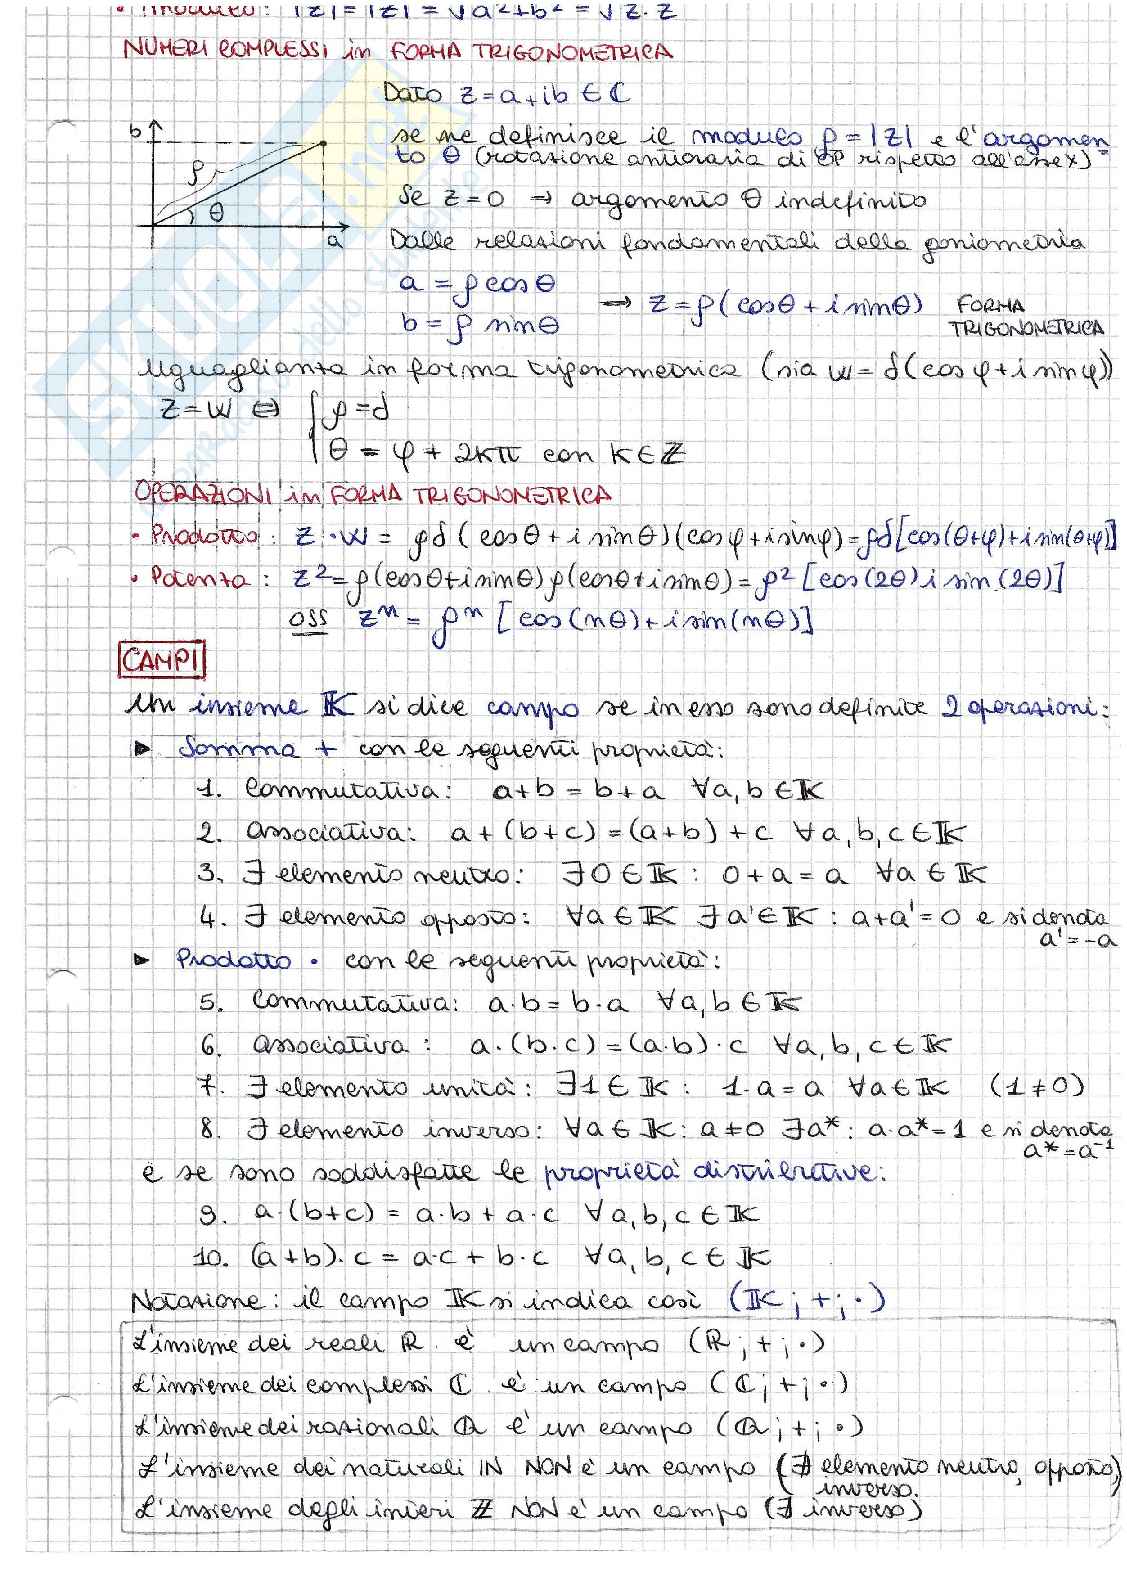 • Modulo: |z| = |z̄| = √a²+b² = √z·z̄
NUMERI COMPLESSI in FORMA TRIGONOMETRICA
Dato z = a+ib ∈ ℂ
se ne definisce il modulo ρ = |z| e l'argomen
to θ (rotazione antioraria di OP rispetto all'asse x)
b
ρ
θ
a
Se z=0 → argomento θ indefinito
Dalle relazioni fondamentali della goniometria
a = ρ cosθ
b = ρ sinθ
→ z = ρ(cosθ + i sinθ) FORMA
TRIGONOMETRICA
Uguaglianza in forma trigonometrica (sia w = δ(cosφ + i sinφ))
z = w ⇔ { ρ = δ
θ = φ + 2kπ con k∈ℤ
OPERAZIONI in FORMA TRIGONOMETRICA
• Prodotto: z·w = ρδ(cosθ + i sinθ)(cosφ + i sinφ) = ρδ[cos(θ+φ) + i sin(θ+φ)]
• Potenza: z² = ρ(cosθ + i sinθ)ρ(cosθ + i sinθ) = ρ²[cos(2θ) i sin(2θ)]
OSS zⁿ = ρⁿ [cos(nθ) + i sin(nθ)]
CAMPI
Un insieme 𝕂 si dice campo se in esso sono definite 2 operazioni:
▶ Somma + con le seguenti proprietà:
1. Commutativa: a+b = b+a ∀a,b ∈ 𝕂
2. Associativa: a+(b+c) = (a+b)+c ∀a,b,c ∈ 𝕂
3. ∃ elemento neutro: ∃0 ∈ 𝕂 : 0+a = a ∀a ∈ 𝕂
4. ∃ elemento opposto: ∀a ∈ 𝕂 ∃a' ∈ 𝕂 : a+a' = 0 e si denota
a' = -a
▶ Prodotto · con le seguenti proprietà:
5. Commutativa: a·b = b·a ∀a,b ∈ 𝕂
6. Associativa: a·(b·c) = (a·b)·c ∀a,b,c ∈ 𝕂
7. ∃ elemento unità: ∃1 ∈ 𝕂 : 1·a = a ∀a ∈ 𝕂 (1≠0)
8. ∃ elemento inverso: ∀a ∈ 𝕂 : a≠0 ∃a* : a·a* = 1 e si denota
a* = a⁻¹
e se sono soddisfatte le proprietà distributive:
9. a·(b+c) = a·b + a·c ∀a,b,c ∈ 𝕂
10. (a+b)·c = a·c + b·c ∀a,b,c ∈ 𝕂
Notazione: il campo 𝕂 si indica così (𝕂;+;·)
L'insieme dei reali ℝ è un campo (ℝ;+;·)
L'insieme dei complessi ℂ è un campo (ℂ;+;·)
L'insieme dei razionali ℚ è un campo (ℚ;+;·)
L'insieme dei naturali ℕ NON è un campo (∄ elemento neutro, opposto,
inverso.)
L'insieme degli interi ℤ NON è un campo (∄ inverso)